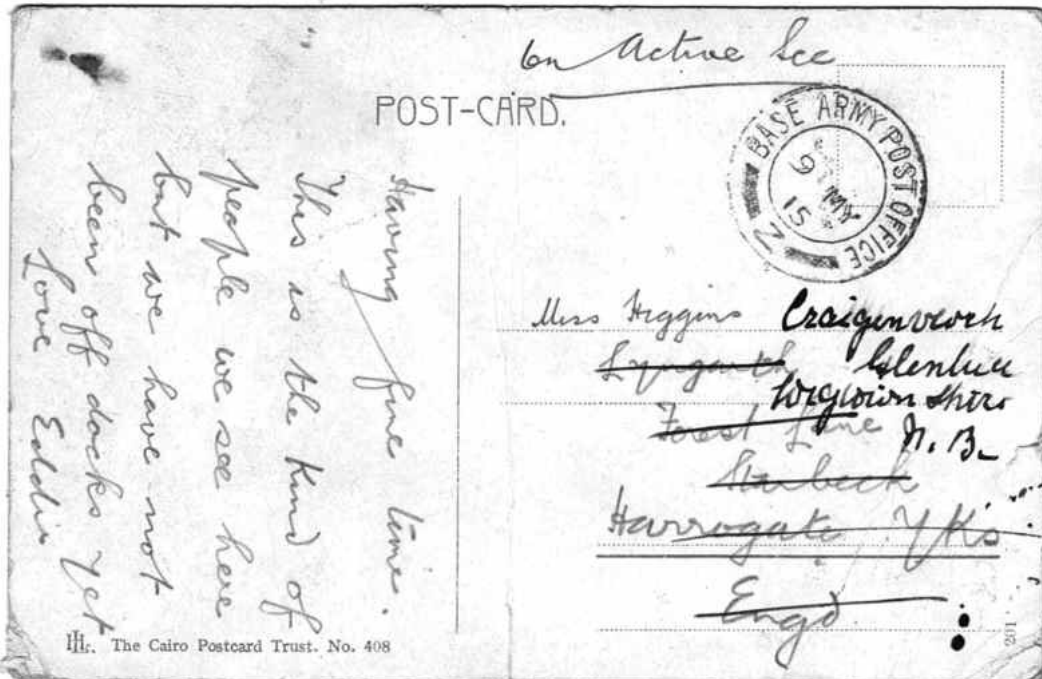 On Active Sce
POST-CARD.
BASE ARMY POST OFFICE
9 MY
15
Z
Having fine time.
This is the kind of
people we see here
but we have not
been off docks yet
Love Eddie
Miss Higgins
Forest Lane
Starbeck
Harrogate Yks
Engd
Glenluce
Wigtown Shire
N.B.
The Cairo Postcard Trust. No. 408
201